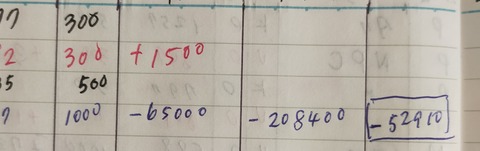 7 300
2 300 +1500
5 500
1000 -65000 -208400 -52910